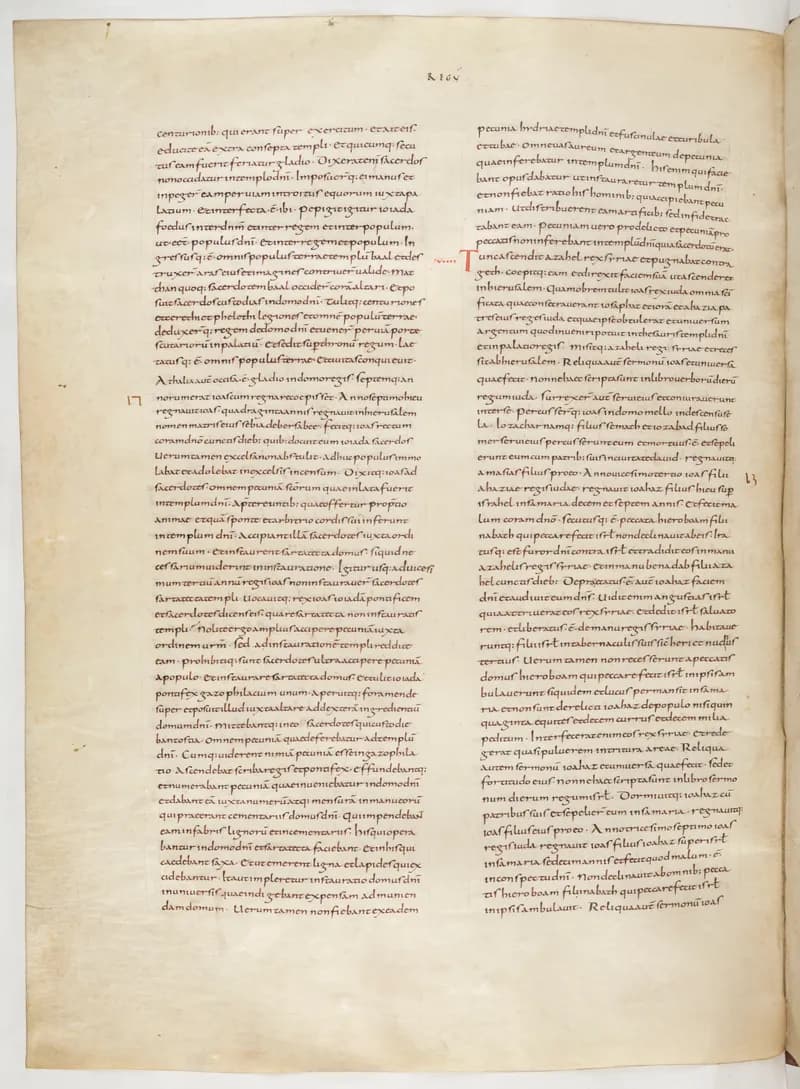 REGŪ
centurionib: qui erant sŭper exercitum · et ait eis ·
educite eā extra consepta templi · Et quicumq; secu
tus eam fuerit feriatur gladio · Dixerat eni sacerdos
non occidatur in templo dnī · Imposuerq; ei manus et
inpeger eam per uiam introitus equorum iuxta pa
latium · Et interfecta ē ibi · Pepigit igitur ioiada
foedus inter dnm et inter regem et inter populum ·
ut ēēt populus dnī · Et inter regem et populum · In
gressusq; ē omnis populus terrae templū baal et des
truxer aras eius et imagines contriuer ualide · Mat
than quoq; sacerdotem baal occider corā altari · Et po
suit sacerdos custodias in domo dnī · Tulitq; centuriones
et cerethi et pheleth legiones et omnē populū terrae ·
deduxerq; regem de domo dnī et uener per uiā porte
scutariorū in palatiū · Et sedit sup thronū regum · Lae
tatusq; ē omnis populus terrae · Et ciuitas conquieuit ·
Athalia autē occisa ē gladio in domo regis · Septemq; an
17
norum erat ioas cum regnare coepisset · Anno septimo hieu
regnauit ioas quadraginta annis regnauit in hierusalem
nomen matris eius sebia de bersabee · fecitq; ioas rectum
coram dno cunctis dieb: quib: docuit eum ioiada sacerdos
Uerum tamen excelsa non abstulit · adhuc populus immo
labat et adolebat in excelsis incensum · Dixitq; ioas ad
sacerdotes · omnem pecuniā scōrum quae inlata fuerit
in templum dnī · A ptereuntib: quae offertur p̄ p̄tio
animae et quā sponte et arbitrio cordis sui inferunt
in templum dnī · Accipiant illā sacerdotes iuxta ordi
nem suum · Et instaurent sartatecta domus · si quid ne
cessarium uiderint in instauratione · Igitur usq; ad uicesi
mum tertiū annū regis ioas non instaurauer sacerdotes
sartatecta templi · Uocauitq; rex ioas ioiadā pontificem
et sacerdotes dicens eis · quare sartatecta non instauratis
templi · Nolite ergo amplius accipere pecuniā iuxta
ordinem urm · sed ad instaurationē templi reddite
eam · prohibitiq; sunt sacerdotes ultra accipere pecuniā
a populo · Et instaurare sartatecta domus · Et tulit ioiada
pontifex gazophilacium unum · Aperuitq; foramen de
super et posuit illud iuxta altare ad dexterā ingredientiū
domum dnī · Mittebantq; in eo sacerdotes qui custodie
bant ostia · omnem pecuniā quae deferebatur ad templū
dnī · Cumq; uiderent nimiā pecuniā esse in gazophila
tio · Ascendebat scriba regis et pontifex · effundebantq;
et numerabant pecuniā quae inueniebatur in domo dnī
et dabant eā iuxta numerū atq; mensurā in manu eorū
qui praeerant cementariis domus dnī · Qui impendebant
eam in fabris lignorū et in cementariis · his qui opera
bantur in domo dnī et sartatecta faciebant · Et in his qui
caedebant saxa · Et ut emerent ligna et lapides qui ex
cidebantur · Ita ut impleretur instauratio domus dnī
in uniuersis quae indigebant expensam ad munien
dam domum · Uerum tamen non fiebant ex eadem
pecunia hydriae templi dnī et fuscinulae et turibula
et tubae · omne uas aureum et argenteum de pecunia
quae inferebatur in templum dnī · His enim qui facie
bant opus dabatur ut instauraretur templum dnī ·
et non fiebat ratio his hominib: qui accipiebant pecu
niam · Ut distribuerent eam artificib: sed in fide trac
tabant eam · Pecuniam uero pro delicto et pecuniā pro
peccatis non inferebant in templū dnī quia sacerdotū erat
Tunc ascendit azahel rex syriae et pugnabat contra
geth · coepitq; eam et direxit faciem suā ut ascenderet
in hierusalem · Quamobrem tulit ioas rex iuda omnia scī
ficata quae consecrauerant iosaphat et iorā et ahazia pa
tres eius reges iuda et quae ipse obtulerat et uniuersum
argentum quod inueniri potuit in thesauris templi dnī
et in palatio regis · Misitq; azaheli regi syriae et reces
sit ab hierusalem · Reliqua autē sermonū ioas et uniuersa
quae fecit · nonne haec scripta sunt in libro uerborū dierū
regum iuda · surrexer autē serui eius et coniurauerunt
inter se · Percusserq; ioas in domo mello in descensu se
la · Iozachar namq; filius semath et iozabad filius so
mer serui eius percusserunt eum et mortuus ē · et sepeli
erunt eum cum patrib: suis in ciuitate dauid · regnauitq;
amasias filius pro eo · Anno uicesimo tertio ioas filii
13
ahaziae regis iudae · regnauit ioahaz filius hieu sup
israhel in samaria decem et septem annis · Et fecit ma
lum coram dno · secutusq; ē peccata hieroboam filii
nabath qui peccare fecit isrl · non declinauit ab eis · Ira
tusq; est furor dnī contra isrl et tradidit eos in manu
azahelis regis syriae · et in manu benadab filii aza
hel cunctis dieb: · Deprecatus ē autē ioahaz faciem
dnī et audiuit eum dns · Uidit enim angustias isrl
quia attriuerat eos rex syriae · Et dedit isrl saluato
rem · et liberatus ē de manu regis syriae · habitaue
runtq; filii isrl in tabernaculis suis sic heri et nudius
tertius · Uerum tamen non recesserunt a peccatis
domus hieroboam qui peccare fecit isrl in ipsis am
bulauerunt siquidem et lucus permansit in sama
ria · et non sunt derelicti ioahaz de populo nisi quin
quaginta equites et decem currus et decem milia
peditum · Interfecerat enim eos rex syriae · Et rede
gerat quasi puluerem in tritura areae · Reliqua
autem sermonū ioahaz et uniuersa quae fecit · sed et
fortitudo eius nonne haec scripta sunt in libro sermo
num dierum regum isrl · Dormiuitq; ioahaz cū
patribus suis et sepelier eum in samaria · regnauitq;
ioas filius eius pro eo · Anno tricesimo septimo ioas
regis iuda regnauit ioas filius ioahaz super isrl
in samaria sedecim annis et fecit quod malum · ē
in conspectu dnī · Non declinauit ab omnib: pecca
tis hieroboam filii nabath qui peccare fecit isrl
in ipsis ambulauit · Reliqua autē sermonū ioas